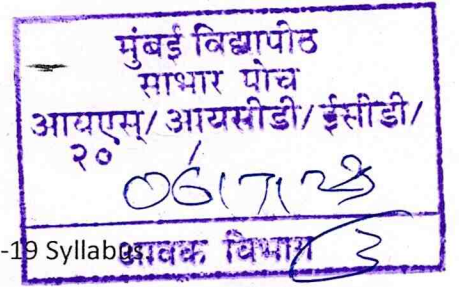 मुंबई विद्यापीठ
साभार पोच
आयएस्/ आयसीडी/ ईसीडी/
२०
06/7/23
-19 Syllabus
आवक विभाग 3